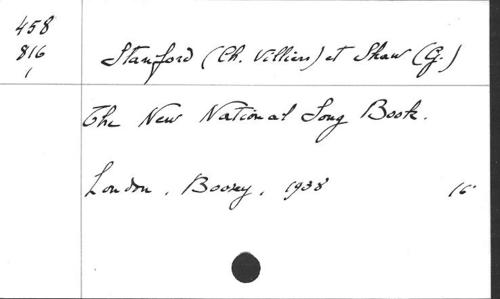 458
816
1
Stanford (Ch. Villiers) et Shaw (G.)
The New National Song Book.
London, Boosey, 1938 16°